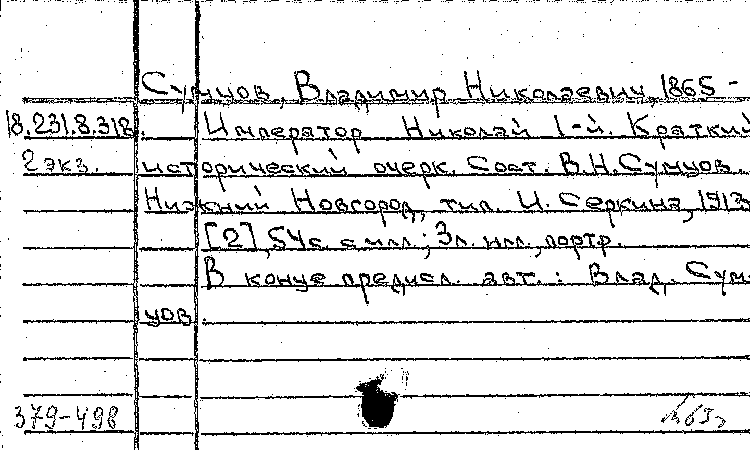 Сумцов, Владимир Николаевич, 1865 -
18.231.8.318. Император Николай I-й. Краткий
2 экз. исторический очерк. Сост. В.Н. Сумцов.
Нижний Новгород, тип. И. Серкина, 1913
[2], 54 с. с илл.; 3 л. илл., портр.
В конце предисл. авт.: Влад. Сум-
цов.
379-498